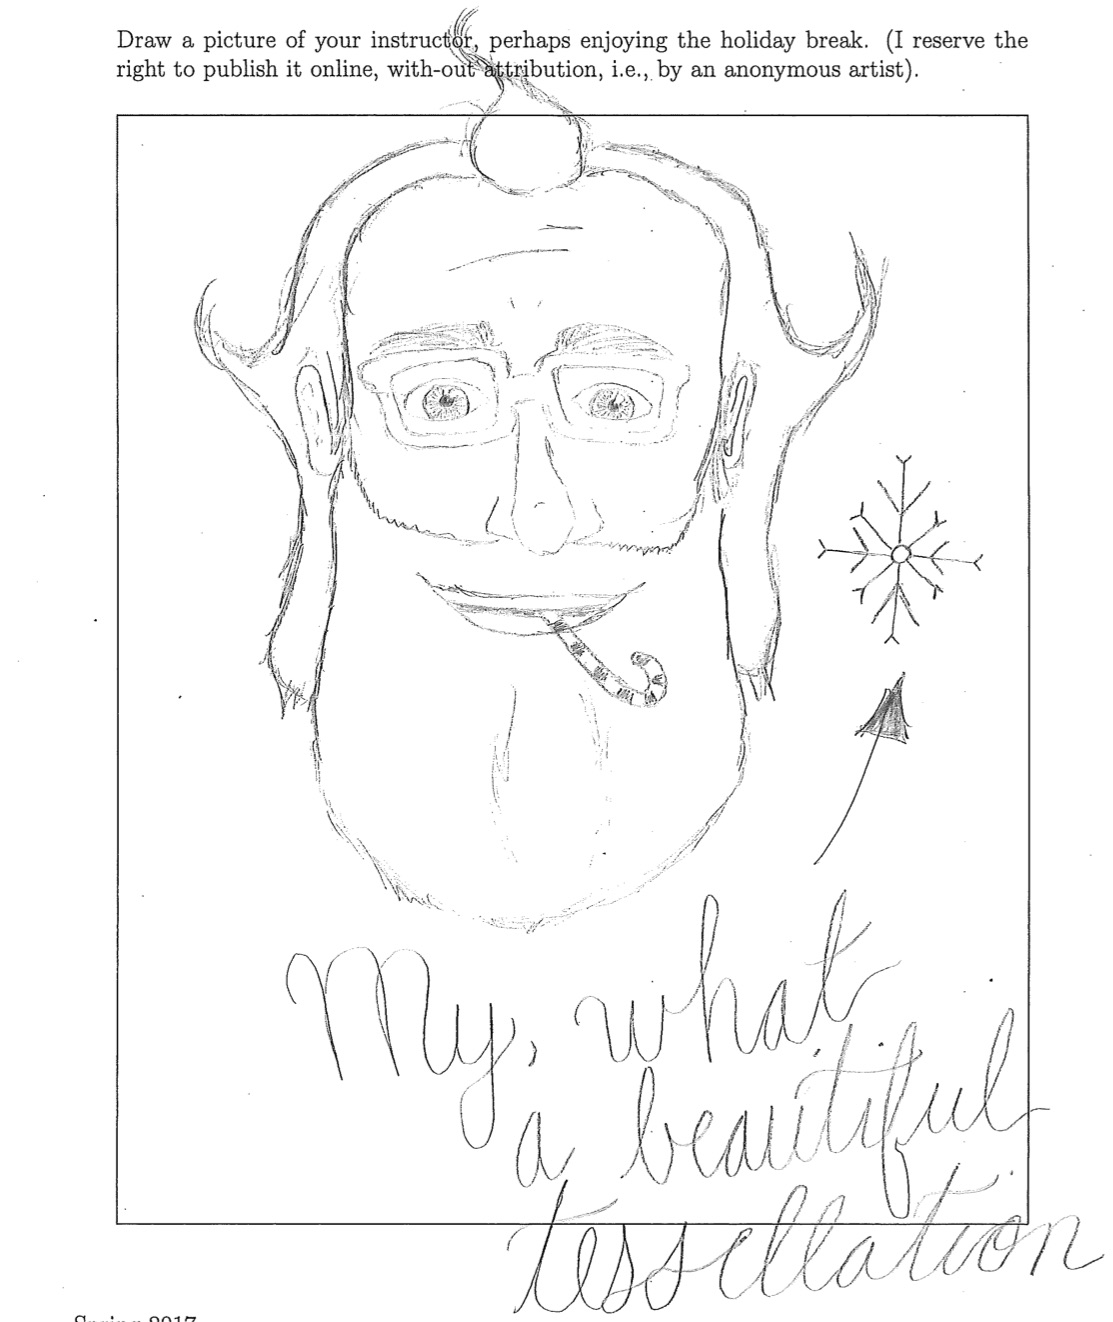 Draw a picture of your instructor, perhaps enjoying the holiday break. (I reserve the
right to publish it online, with-out attribution, i.e., by an anonymous artist).
My, what
a beautiful
tessellation
Spring 2017